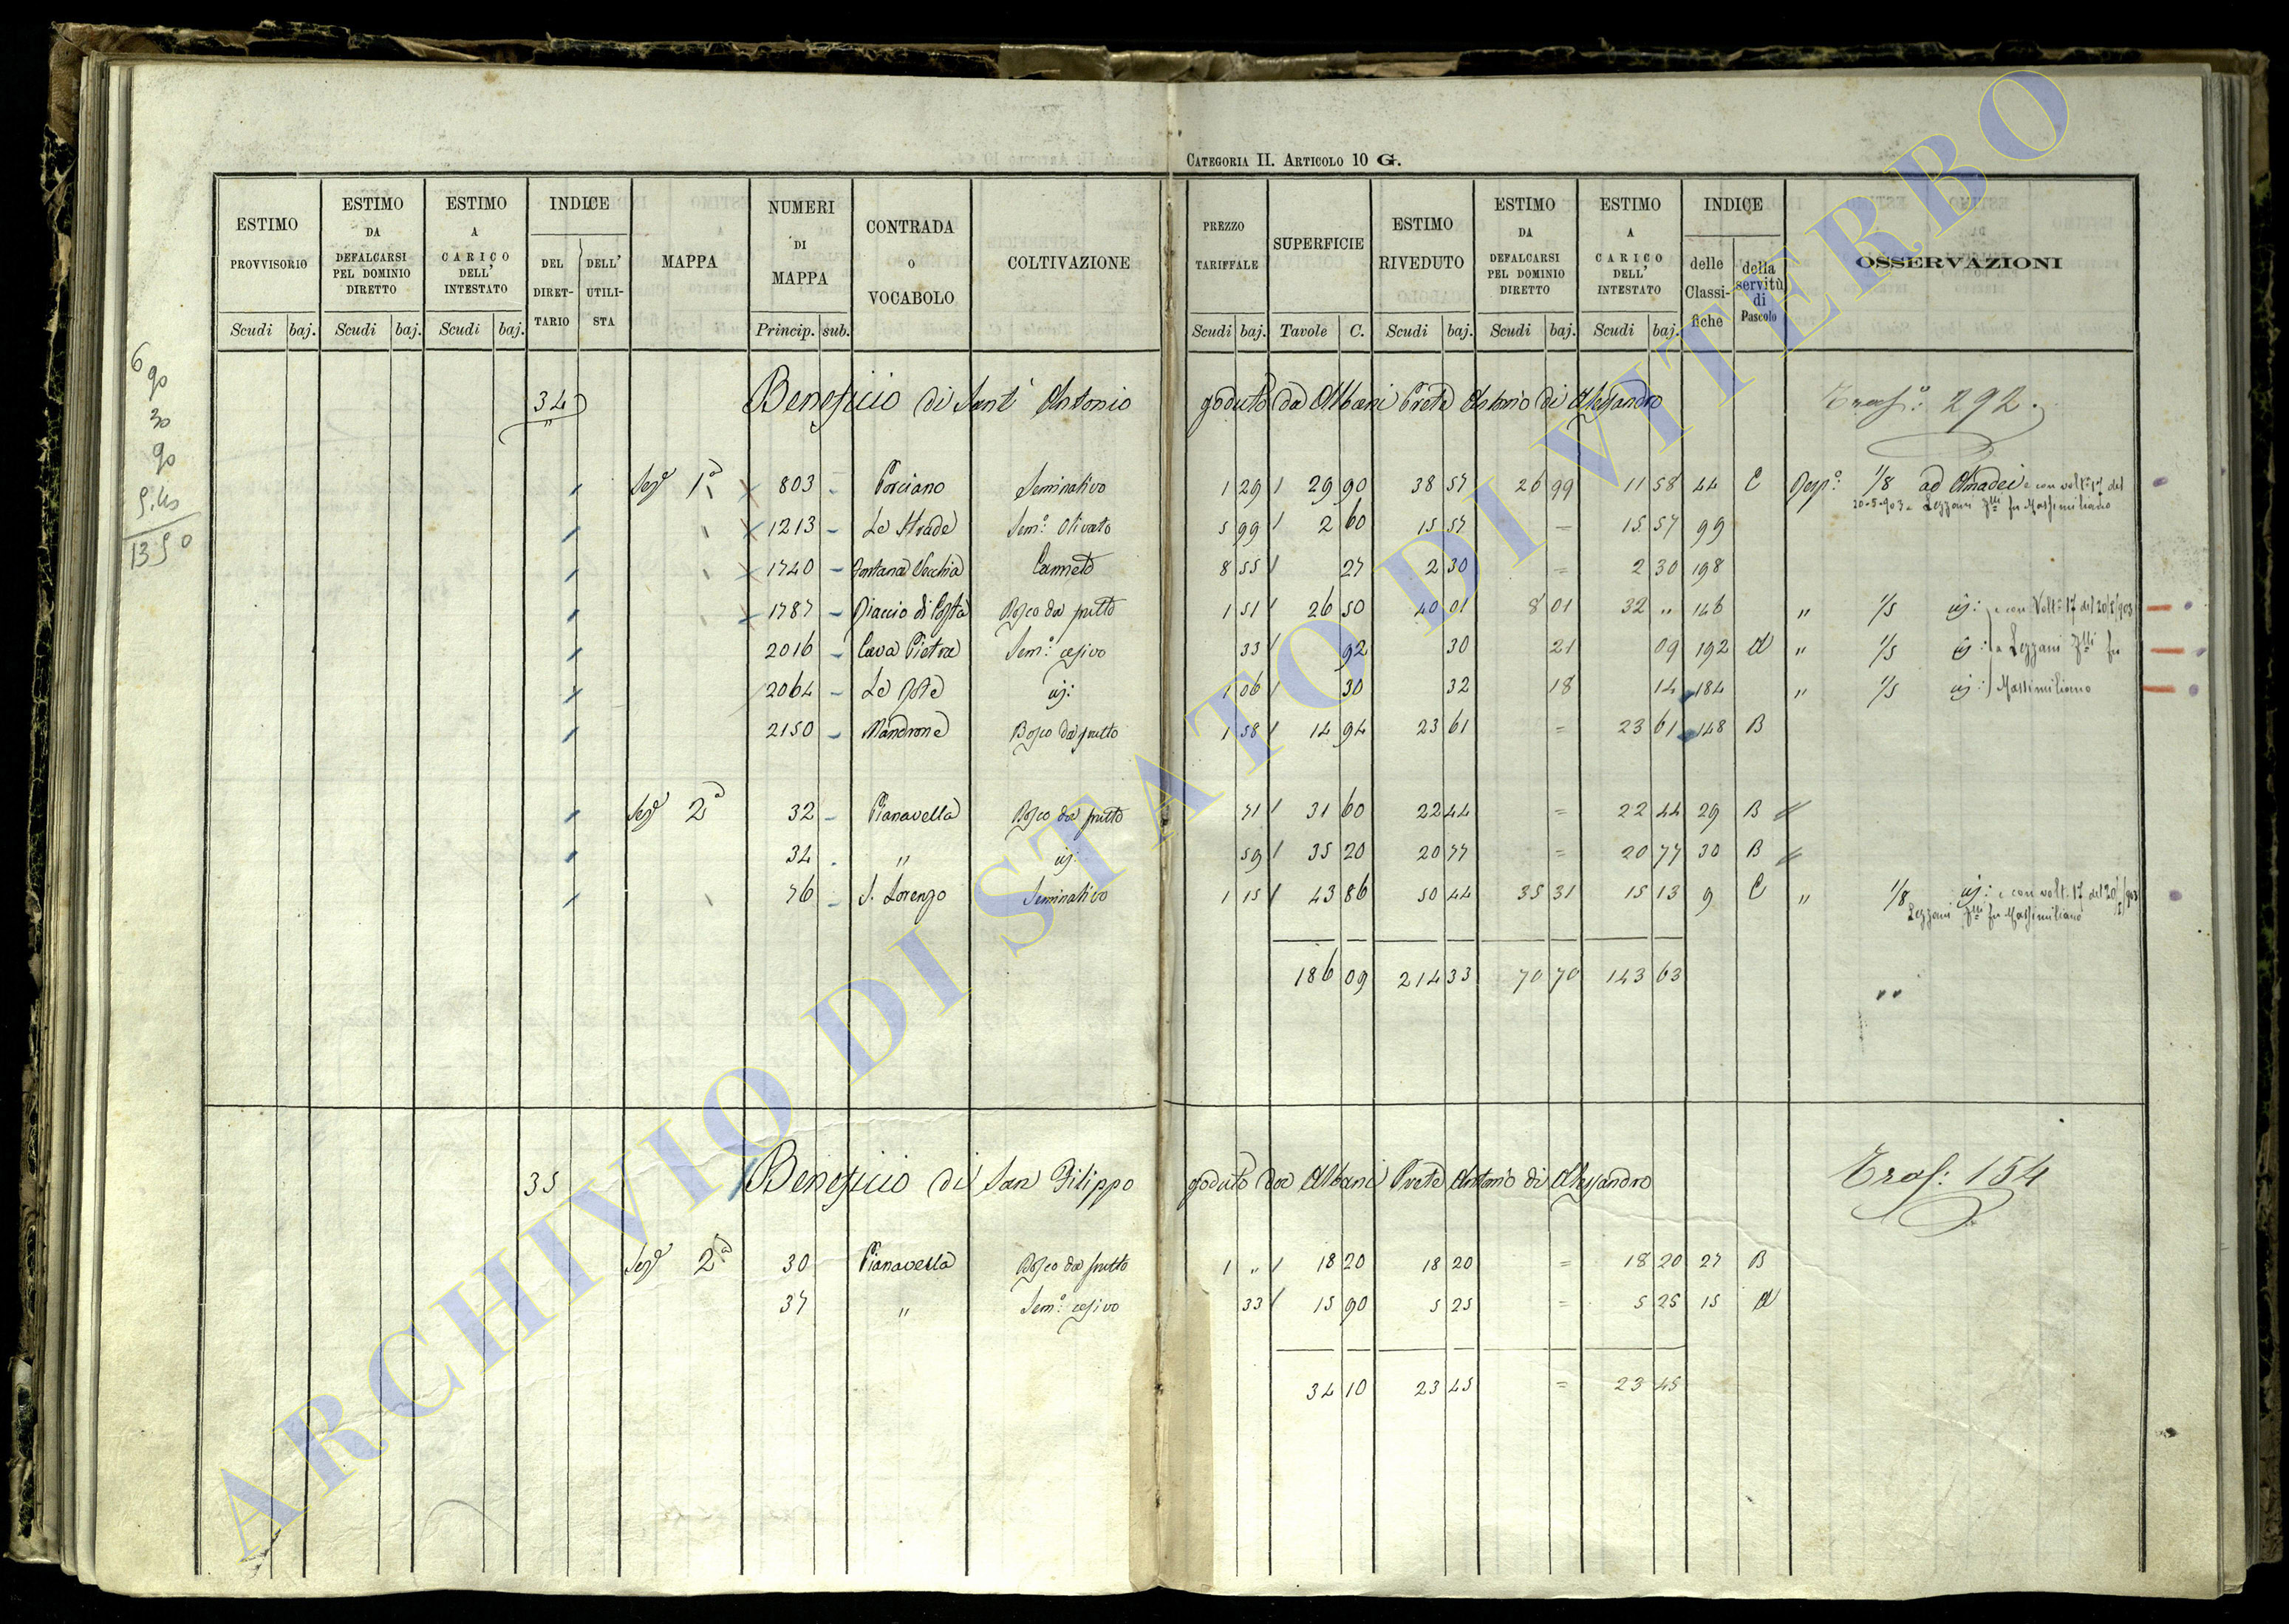 CATEGORIA II. ARTICOLO 10 G.
ESTIMO PROVVISORIO Scudi baj. ESTIMO DA DEFALCARSI PEL DOMINIO DIRETTO Scudi baj. ESTIMO A CARICO DELL' INTESTATO Scudi baj. INDICE DEL DIRET-TARIO DELL' UTILI-STA MAPPA NUMERI DI MAPPA Princip. sub. CONTRADA O VOCABOLO COLTIVAZIONE
PREZZO TARIFFALE Scudi baj. SUPERFICIE Tavole C. ESTIMO RIVEDUTO Scudi baj. ESTIMO DA DEFALCARSI PEL DOMINIO DIRETTO Scudi baj. ESTIMO A CARICO DELL' INTESTATO Scudi baj. INDICE delle Classi-fiche della servitù di Pascolo OSSERVAZIONI
6
90
30
90
1350
34 Beneficio di Sant' Antonio goduto da Albani Prete Antonio di Alessandro Trasf.o 292
Sez.e 1a 803 Porciano Seminativo 1 29 29 90 38 57 26 99 11 58 44 C Risp.o 1/8 ad Amadei e con volt.a 17 del
20-5-903 a Lezzani F.lli fu Massimiliano
1213 Le Strade Sem.o Olivato 5 99 2 60 15 57 = 15 57 99
1740 Fontana Vecchia Canneto 8 55 27 2 30 = 2 30 198
1787 Piaccio di Costa Bosco da frutto 1 51 26 50 40 01 8 01 32 " 146 " 1/5 id: e con Volt.a 17 del 20/5/903
2016 Cava Pietra Sem.o cesivo 33 92 30 21 09 192 A " 1/5 id: a Lezzani F.lli fu
2064 Le Fosse id: 1 06 30 32 18 14 184 " 1/5 id: Massimiliano
2150 Mandrone Bosco da frutto 1 58 14 94 23 61 = 23 61 148 B
Sez.e 2a 32 Pianavella Bosco da frutto 71 31 60 22 44 = 22 44 29 B
34 " id: 59 35 20 20 77 = 20 77 30 B
76 S. Lorenzo Seminativo 1 15 43 86 50 44 35 31 15 13 9 C " 1/8 id: e con volt. 17 del 20/5/903
Lezzani F.lli fu Massimiliano
186 09 214 33 70 70 143 63
35 Beneficio di San Filippo goduto da Albani Prete Antonio di Alessandro Trasf: 154
Sez.e 2a 30 Pianavella Bosco da frutto 1 " 18 20 18 20 = 18 20 27 B
37 " Sem.o cesivo 33 15 90 5 25 = 5 25 15 A
34 10 23 45 = 23 45
ARCHIVIO DI STATO DI VITERBO